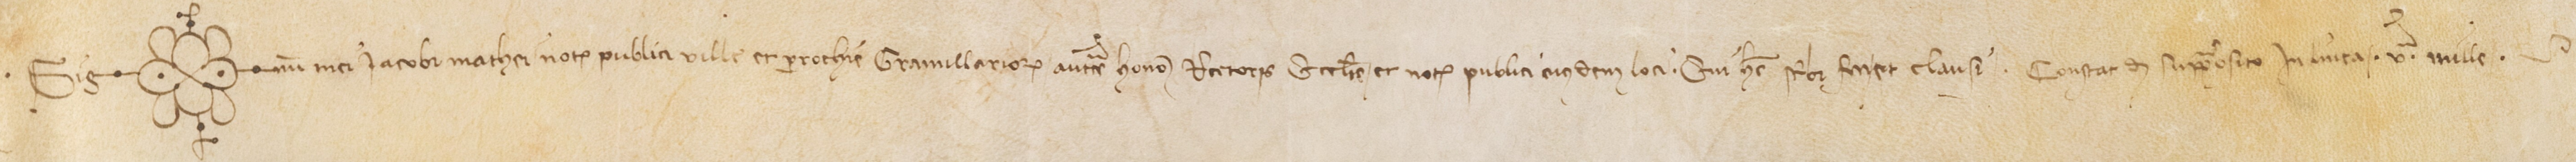 Sig num mei Jacobi mathei not publici ville et parrochie Granullarior auctte honor Rectoris Ecclie et not publici eiusdem loci. Qui hec scribi feci et clausi. Constat de suppraposito In linea. va. mille.